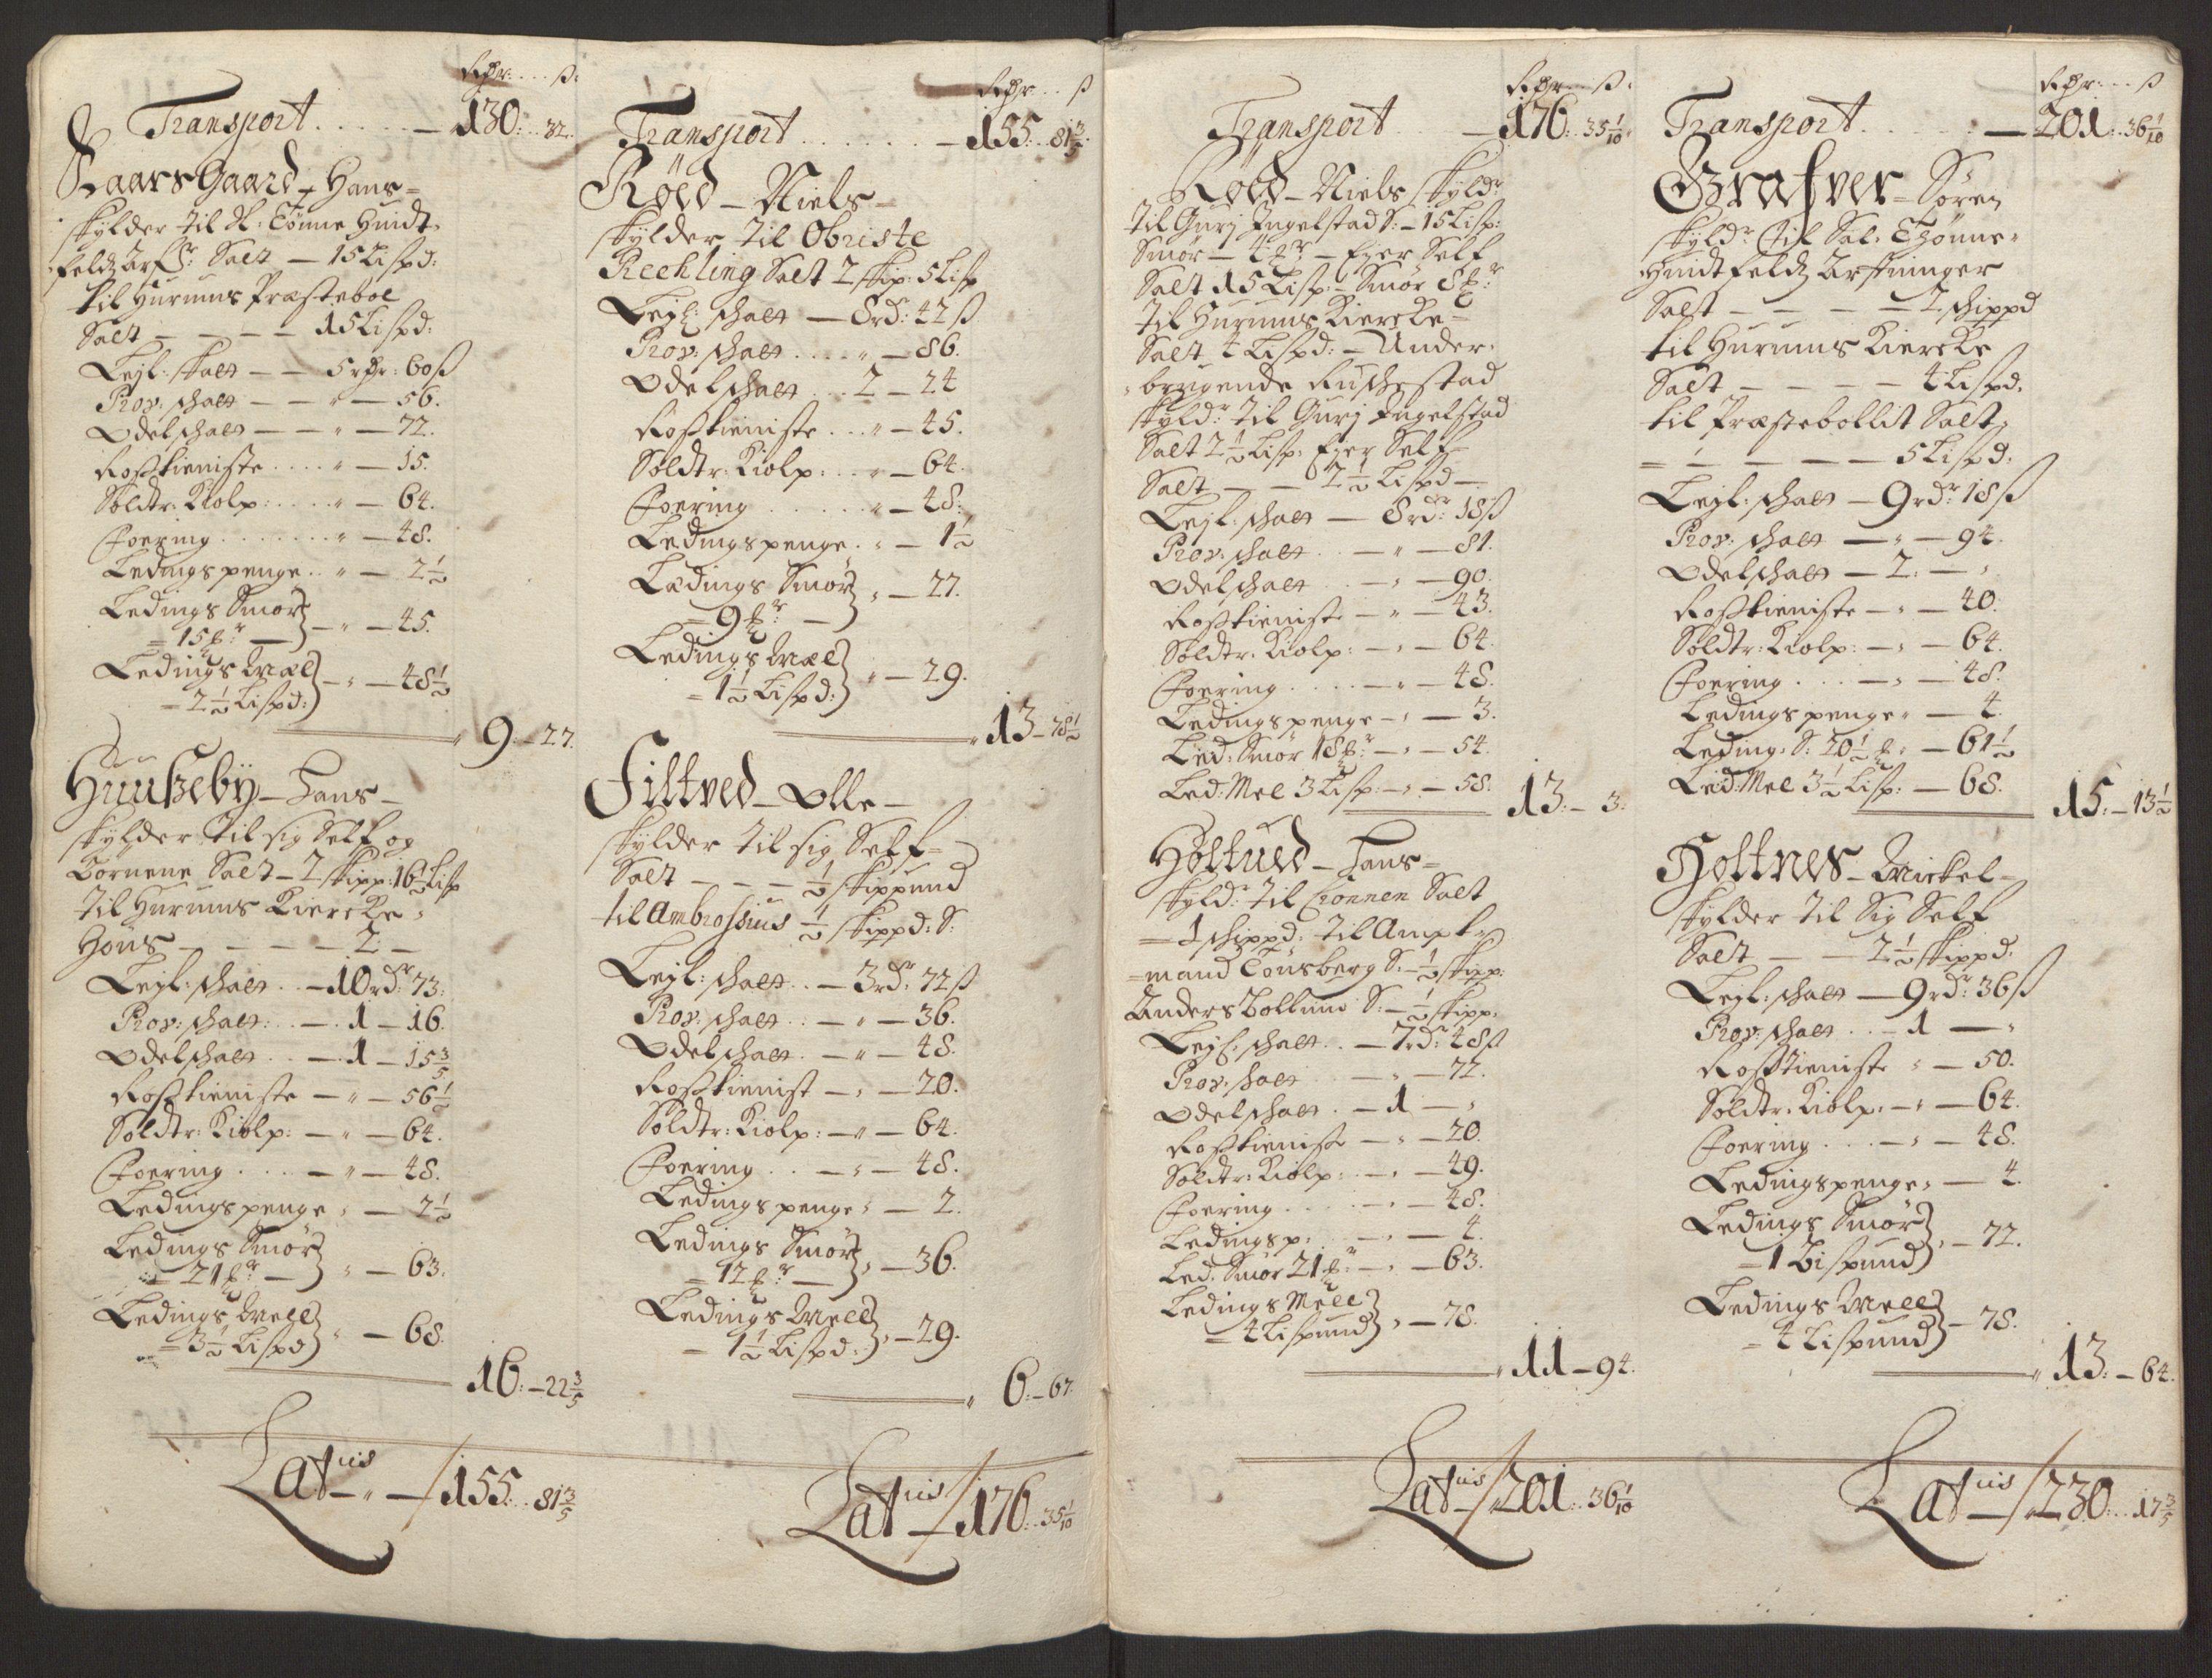 Rdr: ß:
Transport — 130: 32.
Kaars Gaard, Hans
skylder til Sl: Tönne Huidt-
feldz Arf: Salt — 15 Lispd:
til Hurums Præsteboe
Salt — — — 15 Lispd:
Lejl: skatt — — 5 rdr: 60 ß
Prov: schatt — — " — 56.
Odelschatt — — " — 72.
Rostieniste . . . . " — 15.
Soldtr: Kiolp: . . . . " — 64.
Foering . . . . . . . " — 48.
Ledingspenge . . " — 2½
Ledings Smör
= 15 ℔r — } — " — 45.
Ledings Mæl
= 2½ Lispd: } — " — 48½
9: — 27.
Huußeby — Hans —
skylder til sig Self og
Börnene Salt — 2 skipp: 16½ Lisp
til Hurums Kiercke
Höns — — — — 2: —
Lejl: schatt . . — 10 rdr: 73:
Prov: schatt: . . — 1 — 16.
Odelschatt . . — 1 — 15 3/5
Rostieniste — " — 56½
Soldtr: Kiolp: — " — 64.
Foering . . . — " — 48.
Ledingspenge " — 2½
Ledings Smör
= 21 ℔r — } " — 63.
Ledings Mell
= 3½ Lispd } " — 68.
16: — 22 3/5
Latiis — " — / 155 . . 81 3/5
Rdr . . ß
Transport . . . . . . — 155 . . 81 3/5
Röed — Niels —
skylder til Obriste
Rechling Salt 2 skip: 5 Lisp
Lejl: schatt — 8 rd: 42 ß
Prov: schatt . . . . " — 86.
Odelschatt . . . 2 — 24
Rostieniste . . . " — 45.
Soldtr: Kiolp: . . . " — 64.
Foering . . . . . . " — 48:
Ledingspenge . " — 1½
Lædings Smör
= 9 ℔r — } " — 27.
Ledings Mæl
= 1½ Lispd: } " — 29.
13 — 78½
Filtved — Olle —
skylder til sig Self =
Salt — — — ½ skippund
til Ambrosius ½ skippd: S:
Lejl: schatt . . — 3 rdr: 72 ß
Prov: schatt . . — " — 36.
Odelschatt . — " — 48.
Rostienist — " — 20.
Soldtr: Kiolp: — " — 64.
Foering . . — " — 48.
Ledingspenge " — 2.
Ledings Smör
= 12 ℔r — } " — 36.
Ledings Mell
= 1½ Lispd: } " — 29.
6: — 67.
Latiis — / 176 . . 35 1/10
Rdr . . . ß:
Transport — 176: 35 1/10
Röed — Niels skyldr
til Gurj Ingelstad S: — 15 Lisp:
Smör — 4 ℔r — Ejer Self
Salt 15 Lisp: — Smör 8 ℔r
til Hurums Kiercke =
Salt 4 Lispd: — Under-
brugende Ruskestad
skyldr til Gurj Ingelstad
Salt 2½ Lisp: Ejer Self
Salt — — 2½ Lispd —
Lejl: schatt — 8 rdr: 18 ß
Prov: schatt . . — " — 81.
Odelschatt . . — " — 90.
Rostieniste — " — 43.
Soldtr: Kiolp: — " — 64.
Foering . . . . — " — 48.
Ledingspenge — " — 3.
Led: Smör 18 ℔r — " — 54.
Led: Mel 3 Lisp: — " — 58.
13: — 3.
Höltued — Hans =
skyldr til Cronnen Salt
= 1 schippd: til Ampt-
=mand Tönsberg S: — ½ skipp:
Anders Bollum S: — ½ skipp:
Lejl: schatt . . — 7 rdr: 48 ß
Prov: schatt — " — 72.
Odelschatt . — 1 — "
Rostieniste — " — 20.
Soldtr: Kiolp: — " — 49.
Foering . . . . — " — 48.
Ledingsp: — " — 4.
Led: Smör 21 ℔r — " — 63.
Ledings Mell
= 4 Lispund } " — 78.
11 — 94.
Latiis — / 201 . . 36 1/10
Rdr: . . ß
Transport . . . . . — 201: 36 1/10
Grafver = Sören
skyldr til Sal: Thönne
Huidtfeldz Arfninger
Salt — — — — 2 schippd
til Hurums Kiercke
Salt — — — — 4 Lispd.
til Præstebollit Salt
= — — — — 5 Lispd:
Lejl: schatt — 9 rdr 18 ß
Prov: schatt — " — 94.
Odelschatt — 2: — "
Rostieniste — " — 40.
Soldtr: Kiolp: — " — 64.
Foering . . . — " — 48.
Ledingspenge " — 4.
Leding: S: 20½ ℔ " — 61½
Led: Mel 3½ Lisp: — 68.
15: — 13½
Holtnes — Mickel —
skylder til Sig Self
Salt — — 2½ skippd:
Lejl: schatt — 9 rdr: 36 ß
Prov: schatt . . — 1 — "
Rostieniste " — 50.
Soldtr: Kiolp: — " — 64.
Foering . . . — " — 48.
Ledingspenge " — 4.
Ledings Smör
= 1 Bispund } " — 72.
Ledings Mell
= 4 Lispund } — 78.
13: — 64.
Latiis — / 230: . . 17 3/5